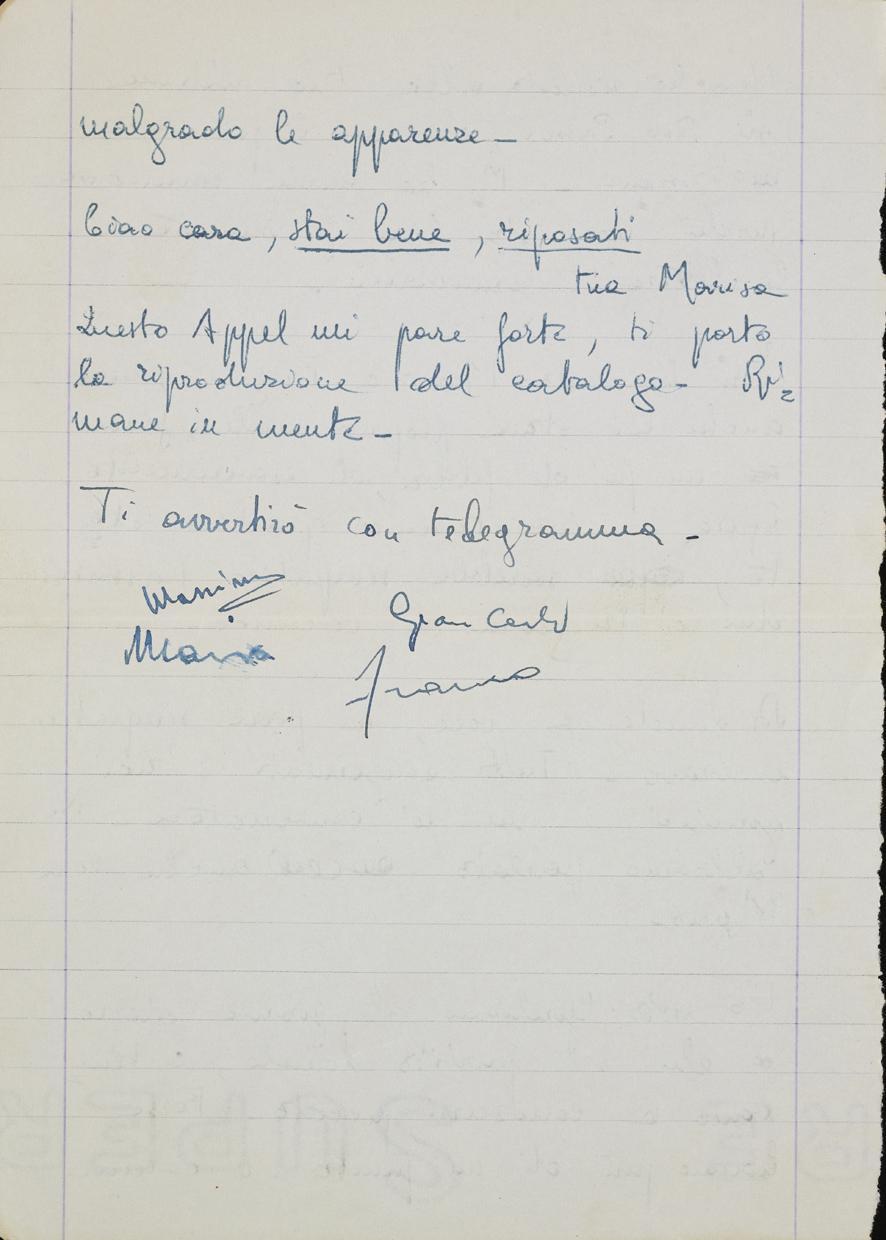 malgrado le apparenze –
Ciao cara, stai bene, riposati
tua Marisa
Questo Appel mi pare forte, ti porto
la riproduzione del catalogo – Ri=
mane in mente –
Ti avvertirò con telegramma –
Massimo
Gian Carlo
Maria
Franco